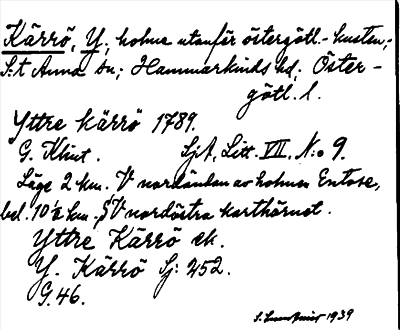 Kärrö, Y., holme utanför östergötl.-kusten;
S:t Anna sn; Hammarkinds hd. Öster-
götl. l.
Yttre kärrö 1789.
G. Klint. SjA, Litt. VIII. N:o 9.
Läge 2 km. V nordändan av holmen Entose,
bel. 10½ km. SV nordöstra karthörnet.
Yttre Kärrö ek.
Y. Kärrö Sj: 252.
G.46.
1939